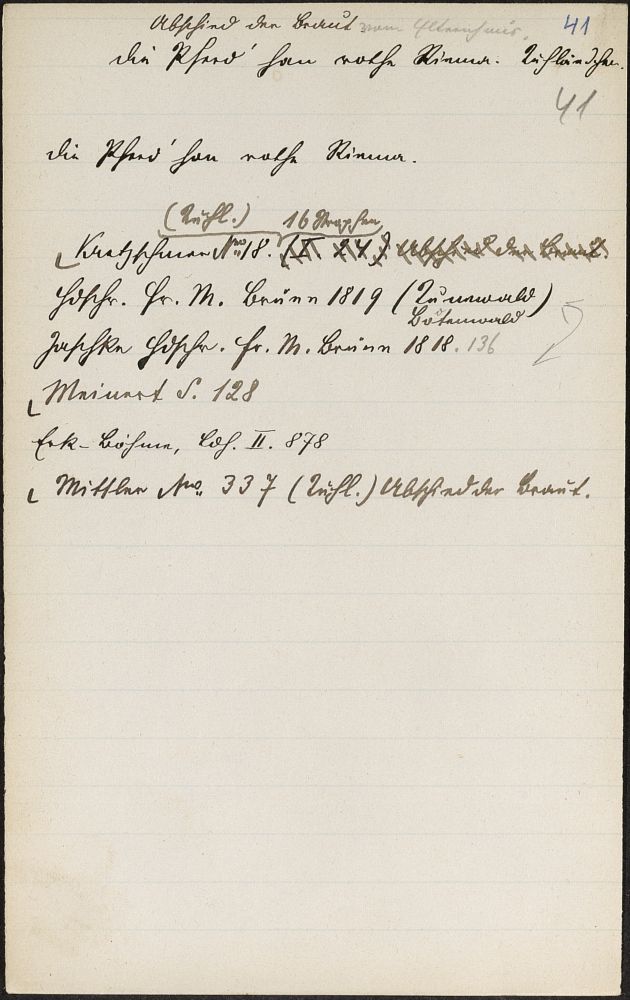 Abschied der Braut vom Elternhaus. 41
die Pferd' han rothe Riema. Kuhländchen.
41
die Pferd' han rothe Riema.
(Kuhl.) 16 Strophen
Kretzschmer No. 18. (II 24) Abschied der Braut.
Hdschr. Fr. M. Brünn 1819 (Kunewald)
Botenwald
Jaschke Hdschr. Fr. M. Brünn 1818. 136
Meinert S. 128
Erk-Böhme, Ldh. II. 878
Mittler No. 337 (Kuhl.) Abschied der Braut.